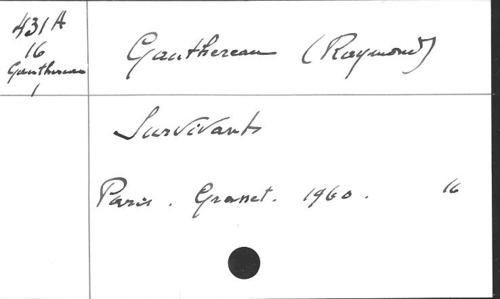 431 A
16
Gauthereau
1
Gauthereau (Raymond)
Survivants
Paris. Grasset. 1960. 16